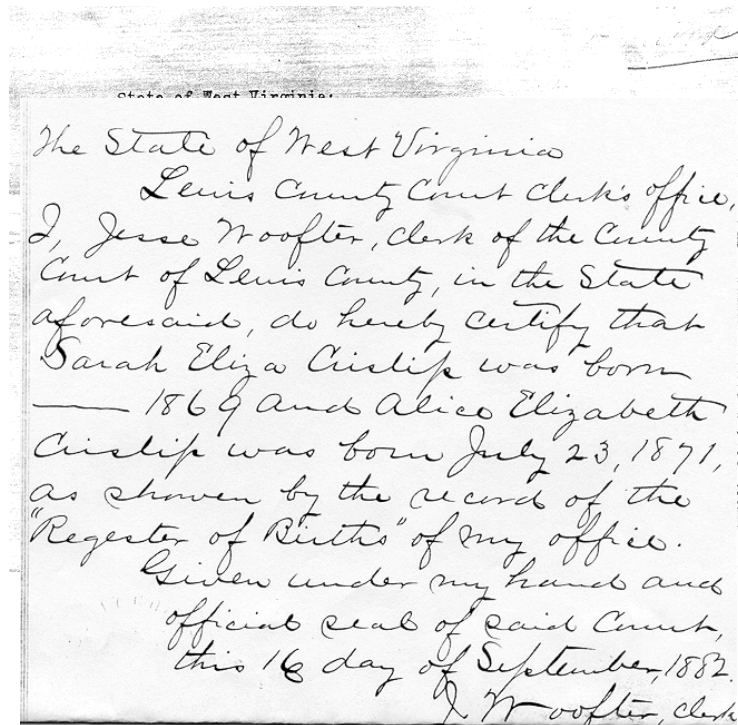 State of West Virginia:
The State of West Virginia
Lewis County Court Clerk's office,
I, Jesse Woofter, clerk of the County
Court of Lewis County, in the State
aforesaid, do hereby certify that
Sarah Eliza Crislip was born
—— 1869 and Alice Elizabeth
Crislip was born July 23, 1871,
as shown by the record of the
"Regester of Births" of my office.
Given under my hand and
official seal of said Court,
this 16 day of September, 1882.
J Woofter clerk